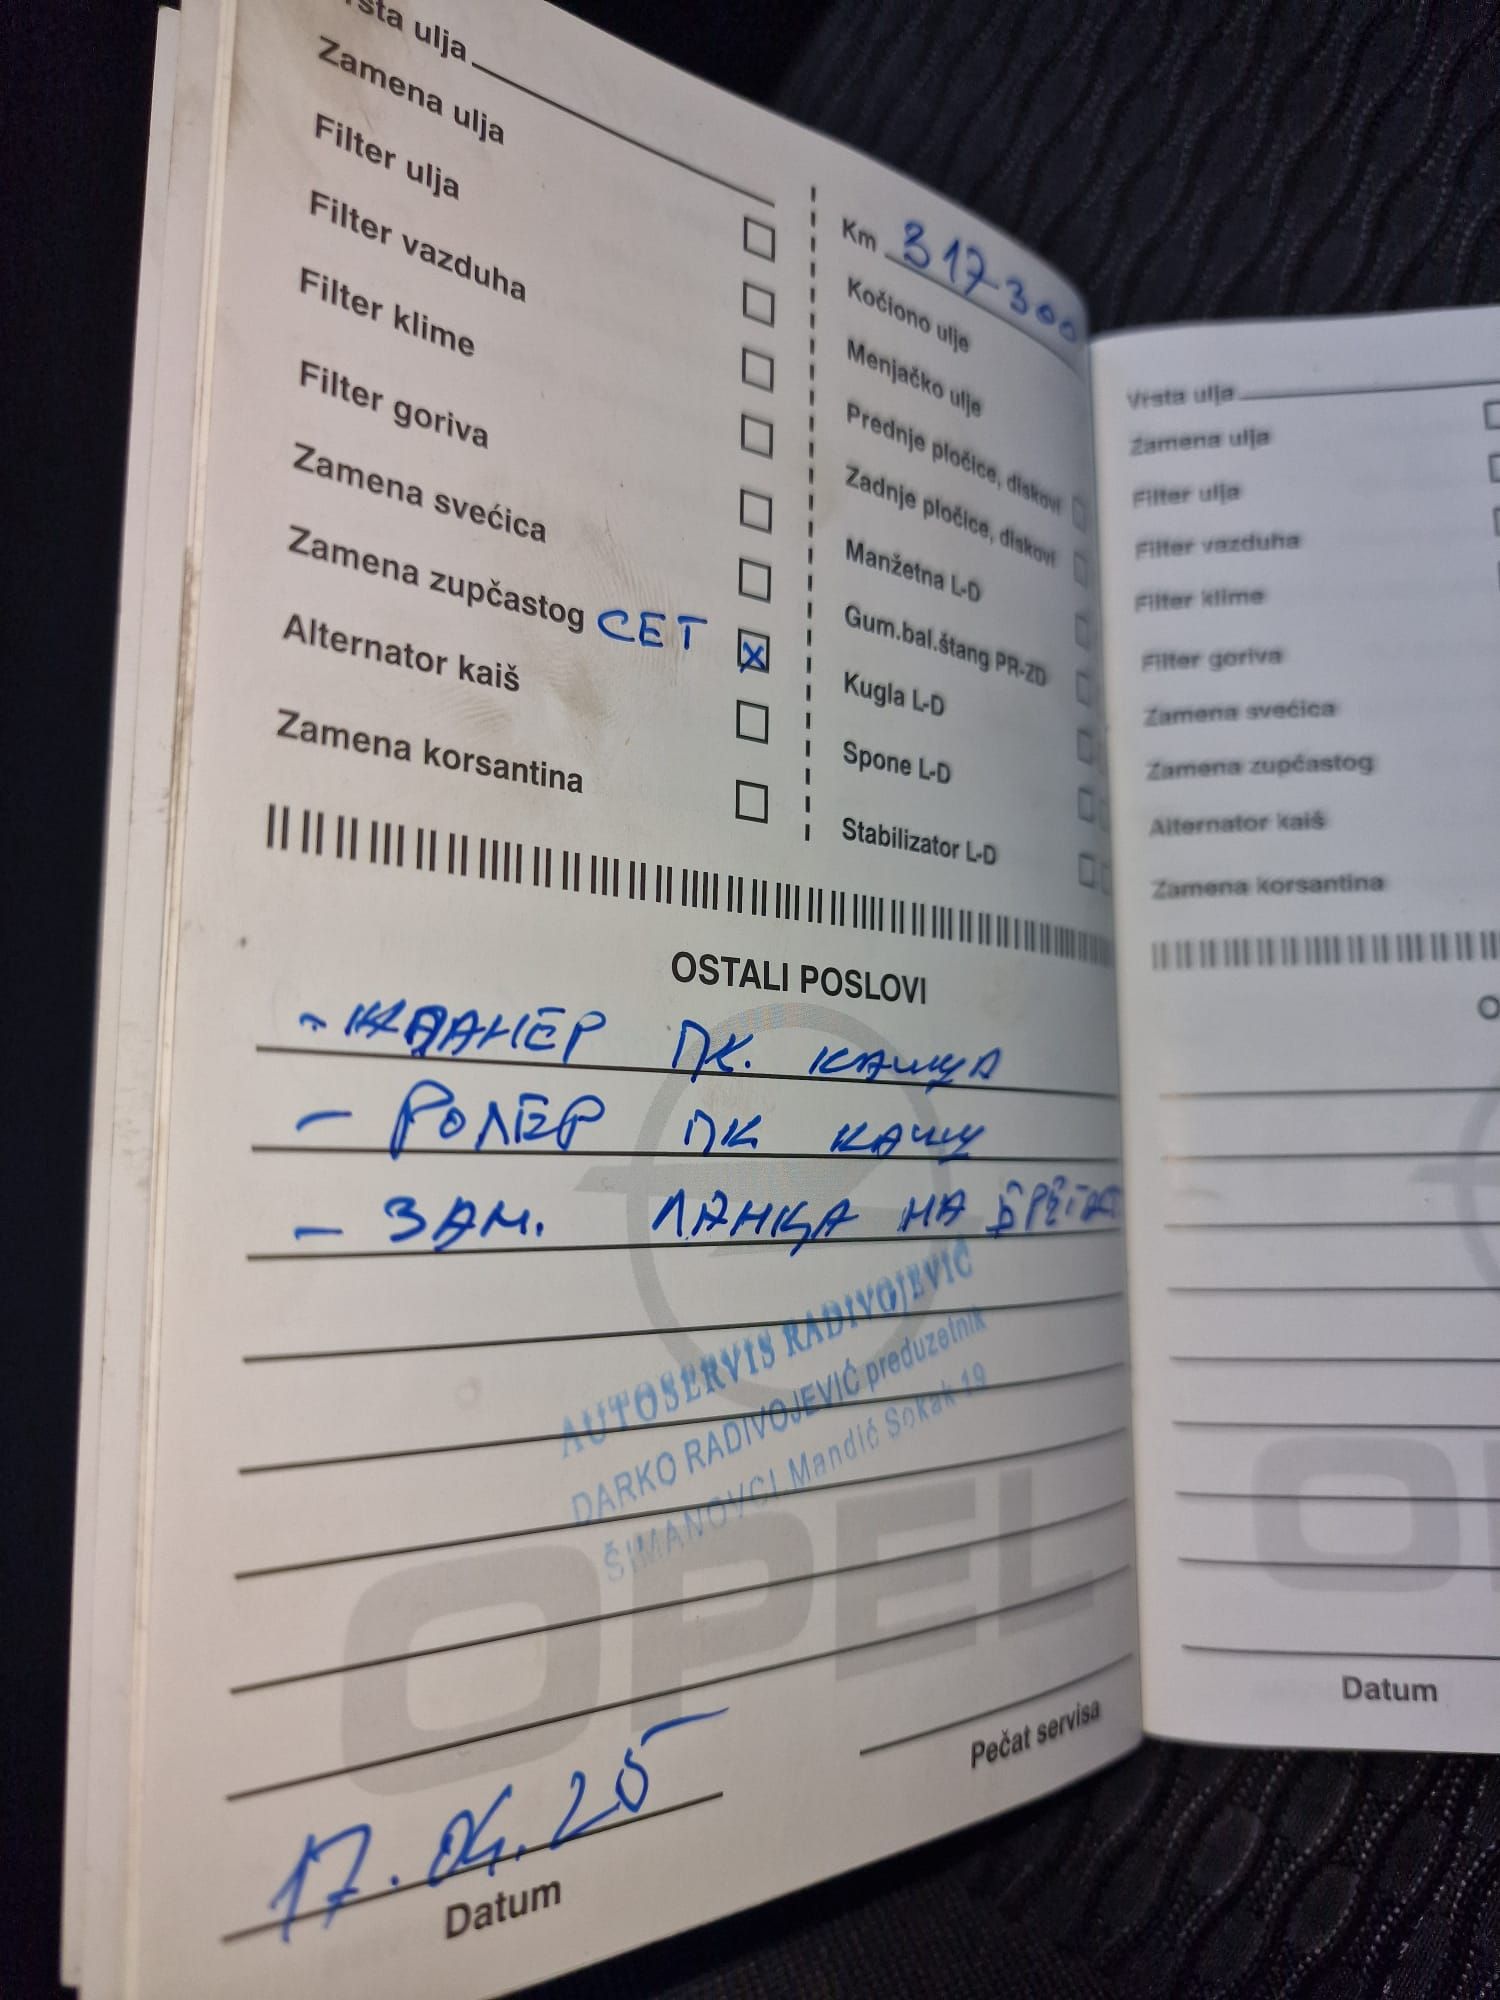 ulja
Zamena ulja
Filter ulja
Filter vazduha
Filter klime
Filter goriva
Zamena svećica
Zamena zupčastog СЕТ
Alternator kaiš
Zamena korsantina
Km 317300
Kočiono ulje
Menjačko ulje
Prednje pločice, diskovi
Zadnje pločice, diskovi
Manžetna L-D
Gum.bal.štang PR-ZD
Kugla L-D
Spone L-D
Stabilizator L-D
OSTALI POSLOVI
ПК. КАИША
- РОЛЕР ПК КАИШ
- ЗАМ. ЛАНЦА НА
AUTOSERVIS RADIVOJEVIĆ
DARKO RADIVOJEVIĆ preduzetnik
ŠIMANOVCI, Mandić Sokak 19
OPEL
17.04.25
Datum
Pečat servisa
Vrsta ulja
Zamena ulja
Filter ulja
Filter vazduha
Filter klime
Filter goriva
Zamena svećica
Zamena zupčastog
Alternator kaiš
Zamena korsantina
Datum